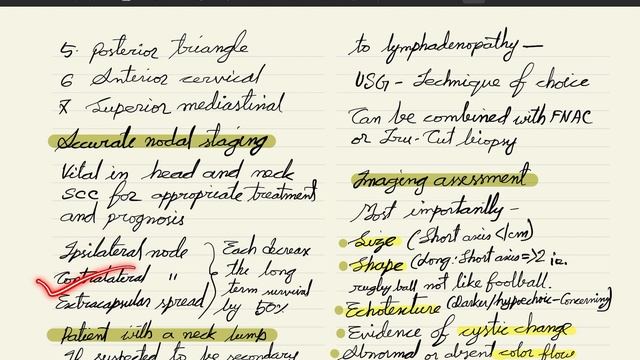 5. Posterior triangle
6 Anterior cervical
7 Superior mediastinal
Accurate nodal staging
Vital in head and neck
SCC for appropriate treatment
and prognosis
Ipsilateral node
Contralateral "
Extracapsular spread
Each decreax
the long
term survival
by 50%
Patient with a neck lump
If suspected to be secondary
to lymphadenopathy —
USG - Technique of choice
Can be combined with FNAC
or Tru-Cut biopsy
Imaging assessment
Most importantly -
Size (Short axis <1cm)
Shape (Long:Short axis=>2 ie.
rugby ball not like football.
Echotexture (Darker/hypoechoic-Concerning)
Evidence of cystic change
Abnormal or absent color flow